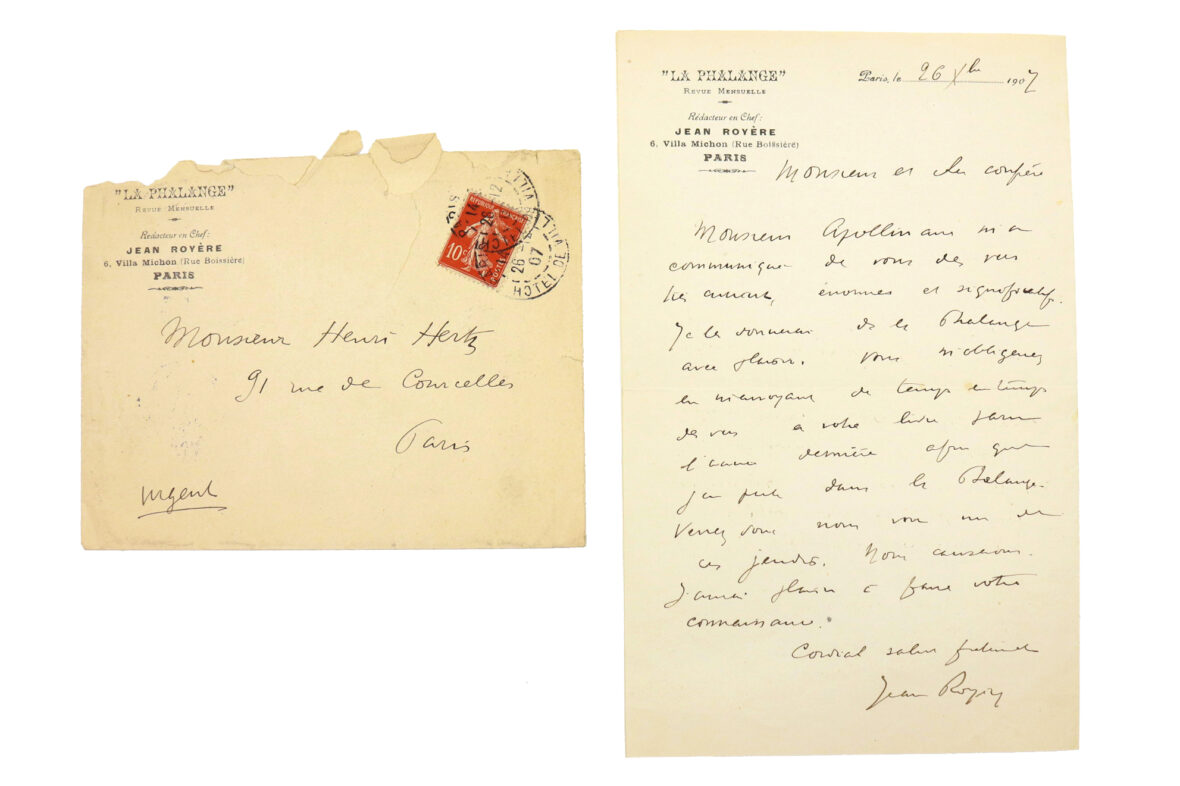 "LA PHALANGE"
REVUE MENSUELLE
Rédacteur en Chef:
JEAN ROYÈRE
6, Villa Michon (Rue Boissière)
PARIS
RÉPUBLIQUE FRANÇAISE
10c
POSTES
HOTEL DE VILLE
26
07
Monsieur Henri Hertz
91 rue de Courcelles
Paris
urgent
"LA PHALANGE"
REVUE MENSUELLE
Rédacteur en Chef:
JEAN ROYÈRE
6, Villa Michon (Rue Boissière)
PARIS
Paris, le 26 Xbre 1907
Monsieur et cher confrère
Monsieur Apollinaire m'a
communiqué de vous des vers
très curieux, énormes et significatifs.
Je les donnerai ds la Phalange
avec plaisir. Vous m'obligerez
en m'envoyant de temps en temps
des vers
l'année dernière afin que
j'en parle dans la Phalange.
Venez donc nous voir un de
ces jeudis. Nous causerons.
J'aurai plaisir à faire votre
connaissance.
Cordial salut
Jean Royère